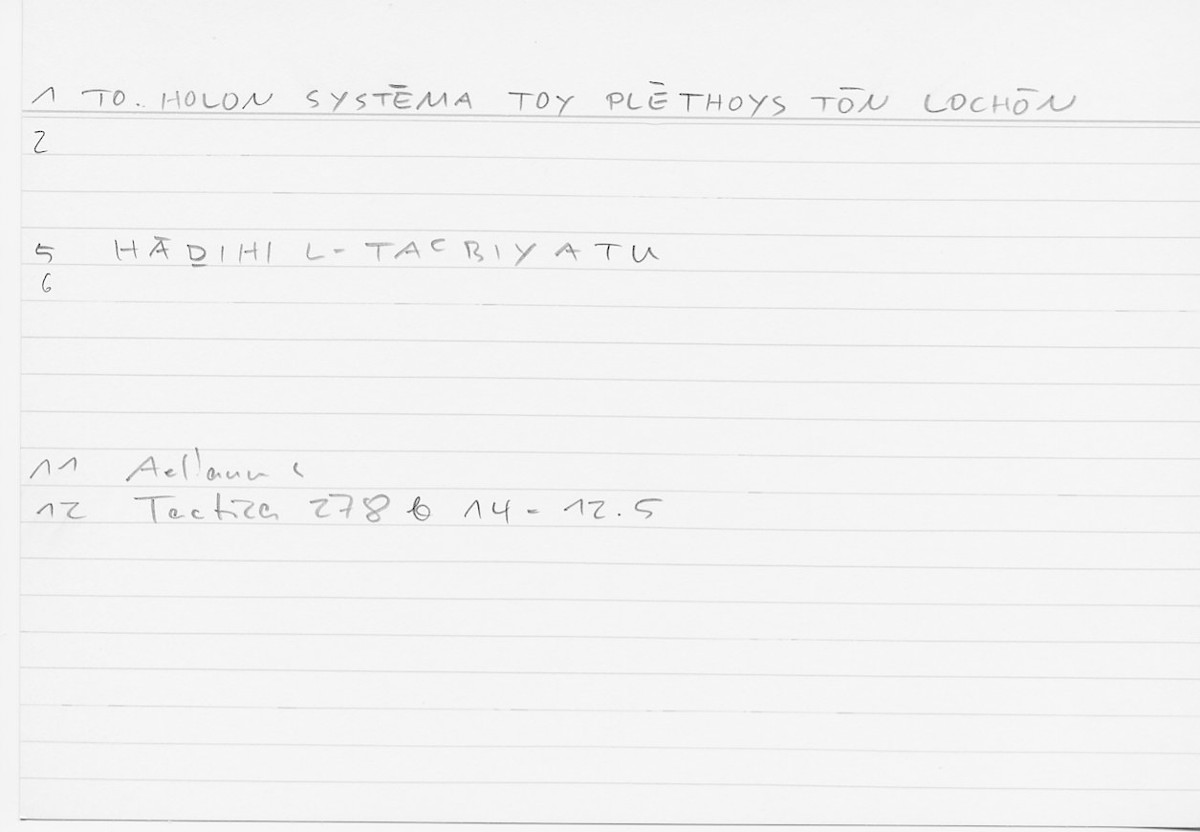 1 TO.. HOLON SYSTĒMA TOY PLĒTHOYS TŌN LOCHŌN
2
5 HĀḎIHI L-TAᶜBIYATU
6
11
12 Tactica 278 b 14 - 12.5